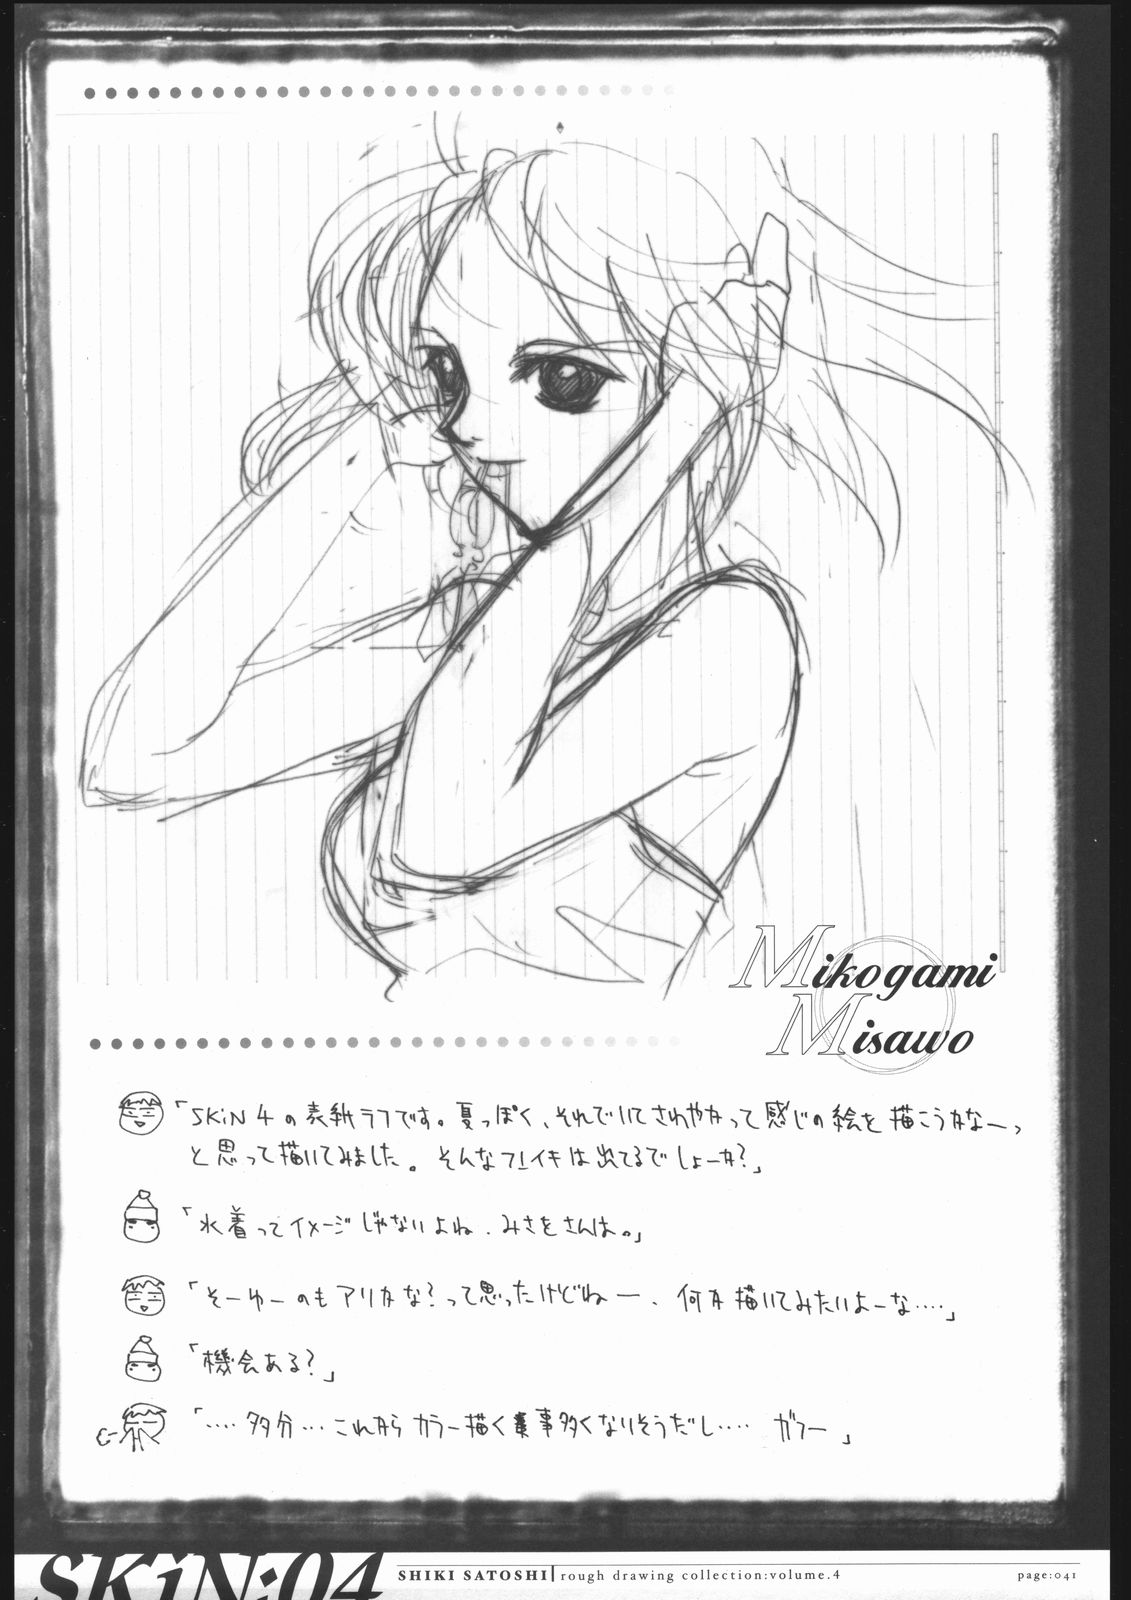 Mikogami
Misawo
「SKiN 4 の表紙ラフです。夏っぽく、それでいてさわやかって感じの絵を描こうかなーっ
と思って描いてみました。そんなフンイキは出てるでしょーか?」
「水着ってイメージじゃないよね、みさをさんは。」
「そーゆーのもアリかな?って思ったけどねー、何か描いてみたいよーな‥‥」
「機会ある?」
「‥‥多分‥‥これから カラー描く事多くなりそうだし‥‥ ガラー」
SKiN:04
SHIKI SATOSHI rough drawing collection:volume.4
page:041